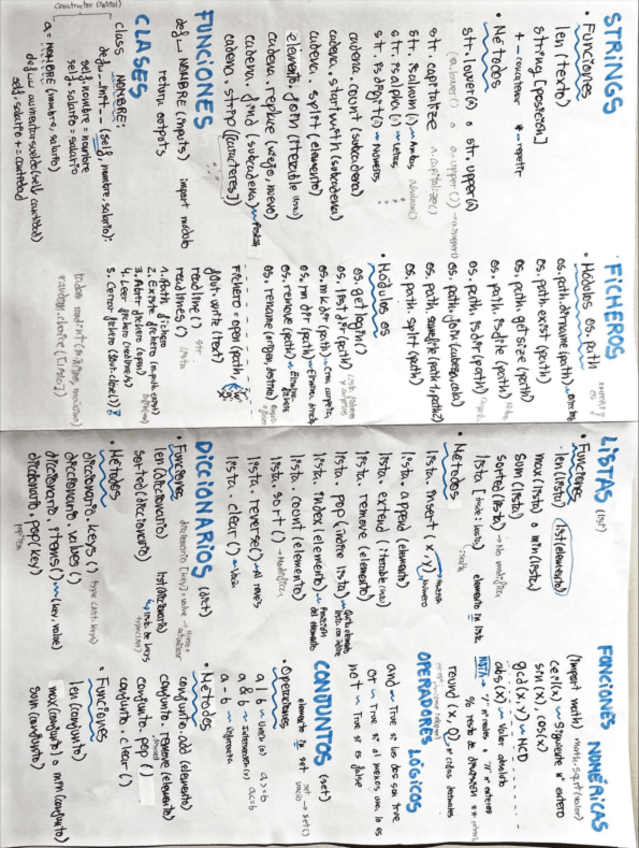 STRINGS
• Funciones
len(texto)
string[posición]
+ → concatenar * → repetir
• Métodos
str.lower(a) o str.upper(a)
(a.lower() o a.upper())
str.capitalize a.capitalize()
str.isalnum() → Ambos
str.isalpha() → Letras
str.isdigit() → Números
cadena.count(subcadena)
cadena.startwith(subcadena)
cadena.split(elemento)
elemento.join(iterable)
cadena.replace(viejo, nuevo)
cadena.find(subcadena)
cadena.strip([caracteres])
FUNCIONES
def NOMBRE(inputs)
return outputs
import módulo
CLASES
class NOMBRE:
def __init__(self, nombre, salario):
self.nombre = nombre
self.salario = salario
a = NOMBRE(nombre, salario)
self.salario += cantidad
FICHEROS
• Módulos os.path
os.path.dirname(path)
os.path.exist(path)
os.path.get size(path)
os.path.isfile(path)
os.path.isdir(path)
os.path.join(cabeza, cola)
os.path.samefile(path1, path2)
os.path.split(path)
• Módulos os
os.getlogin()
os.listdir(path)
os.mkdir(path) → Crea carpeta
os.rmdir(path) → Elimina direct
os.remove(path) → Elimina fichero
os.rename(origen, destino)
Fichero = open(path,
fout.write(text)
readline() str
readlines() lista
1. Path fichero
2. Existe fichero
3. Abrir fichero (open)
4. Leer fichero (readlines)
5. Cerrar fichero (fout.close())
random.randint(mínimo, máximo)
random.choice([lista])
LISTAS (list)
• Funciones
len(lista) list(elemento)
max(lista) o min(lista)
sum(lista)
sorted(lista) → No modifica
elemento in lista
• Métodos
lista.insert(x, y)
lista.append(elemento)
lista.extend(iterable)
lista.remove(elemento)
lista.pop(índice lista)
lista.index(elemento) → Posición del elemento
lista.count(elemento)
lista.sort() → Modifica
lista.reverse() → Al revés
lista.clear() → Vacía
DICCIONARIOS (dict)
diccionario[key] = value
• Funciones
len(diccionario) list(diccionario)
sorted(diccionario) lista de keys
• Métodos
diccionario.keys()
diccionario.values()
diccionario.items() → (key, value)
diccionario.pop(key)
FUNCIONES NUMÉRICAS
(import math) math.sqrt(valor)
ceil(x) → siguiente nº entero
sin(x), cos(x)
gcd(x, y) → MCD
abs(x) → Valor absoluto
NOTA → "/" nº reales "//" nº enteros
% resto de división
round(x, 0) nº cifras decimales
OPERADORES LÓGICOS
and → True si los dos son true
or → True si al menos uno lo es
not → True si es false
CONJUNTOS (set)
elemento in set
set vacío → set()
• Operaciones
a | b → Unión
a & b → Intersección
a - b → Diferencia
• Métodos
conjunto.add(elemento)
conjunto.remove(elemento)
conjunto.pop()
conjunto.clear()
• Funciones
len(conjunto)
max(conjunto) o min(conjunto)
sum(conjunto)